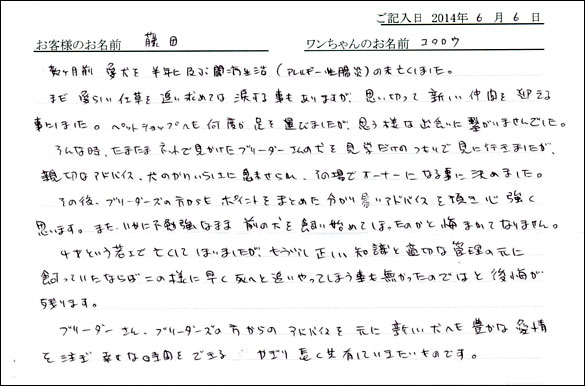 ご記入日 2014年 6 月 6 日
お客様のお名前 藤田 ワンちゃんのお名前 コタロウ
数ヶ月前 愛犬を 半年に及ぶ闘病生活(アレルギー性腸炎)の末亡くしました。
まだ 愛らしい仕草を追い求めては 涙する事もありますが、思い切って 新しい 仲間を 迎える
事にしました。ペットショップへも 何度か 足を 運びましたが、思う様な 出会いに 繋がりませんでした。
そんな時、たまたま ネットで 見かけた ブリーダーさんの犬を 見学だけのつもりで 見に行きましたが、
親切なアドバイス、犬のかわいらしさに 惹きせられ、その場で オーナーに なる事に 決めました。
その後、ブリーダーズの方からも ポイントを まとめた 分かり易いアドバイスを 頂き 心 強く
思います。また、いかに 不勉強なまま 前の犬を 飼い始めてしまったのかと 悔まれてなりません。
4才という若さで 亡くしてしまいましたが、もう少し 正しい 知識と 適切な 管理の元に
飼っていたならば この様に 早く 死へと 追いやってしまう事も 無かったのではと 後悔が
残ります。
ブリーダー さん、ブリーダーズの 方からの アドバイスを 元に 新しい犬へも 豊かな 愛情
を 注ぎ 幸せな時間を できる かぎり 長く 共有していきたいものです。